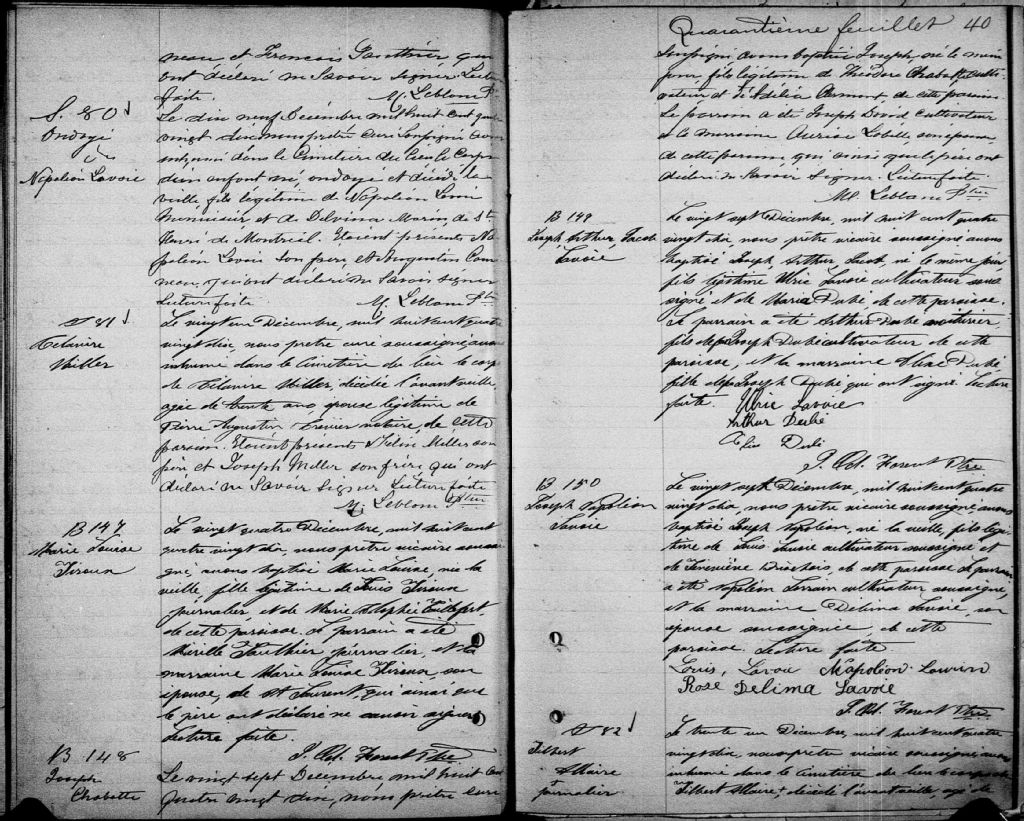 neau et Francois Gauthier qui
ont déclaré ne savoir signer. Lecture
faite. M. Leblanc Ptre
S. 80
Ondoyé
Napoléon Lavoie
Le dix neuf Décembre mil huit cent quatre
vingt dix nous prêtre curé soussigné avons
inhumé dans le Cimetière du lieu le Corps
d'un enfant né, ondoyé et décédé la
veille, fils légitime de Napoléon
menuisier et de Delvina Morin de St
Henri de Montréal. Etaient présents Na
poléon son père et Augustin Com
neau, qui ont déclaré ne savoir signer
Lecture faite M. Leblanc Ptre
S 81
Miller
Le vingt un Décembre, mil huit cent quatre
vingt dix, nous prêtre curé soussigné avons
inhumé dans le cimetière du lieu le corps
de Miller, décédée l'avant veille
agée de trente ans, épouse légitime de
Pierre Augustin notaire, de cette
paroisse. Etaient présents Miller son
père et Joseph Miller son frère qui ont
déclaré ne savoir signer Lecture faite
M. Leblanc Ptre
B 147
Marie Louise
Le vingt quatre Décembre, mil huit cent
quatre vingt dix, nous prêtre vicaire soussi
gné, avons baptisé Marie Louise, née la
veille, fille légitime de Louis
journalier, et de Marie
de cette paroisse. Le parrain a été
Gauthier journalier, et la
marraine Marie Louise son
épouse, de St Laurent, qui ainsi que
le père ont déclaré ne savoir signer
Lecture faite.
Ptre
B 148
Joseph
Chabotte
Le vingt sept Décembre mil huit cent
quatre vingt dix, nous prêtre curé
Quarantième feuillet 40
soussigné avons baptisé Joseph, né le même
jour, fils légitime de Théodore Chabotte culti
vateur et d'Adélia Clermont, de cette paroisse
Le parrain a été Joseph David cultivateur
et la marraine Labelle, son épouse
de cette paroisse, qui ainsi que le père ont
déclaré ne savoir signer. Lecture faite
M. Leblanc Ptre
B 149
Joseph Arthur Jacob
Lavoie
Le vingt sept Décembre, mil huit cent quatre
vingt dix, nous prêtre vicaire soussigné avons
baptisé Joseph Arthur Jacob, né le même jour
fils légitime Ulric Lavoie cultivateur sous
signé et de Maria Dubé de cette paroisse.
Le parrain a été Arthur Dubé
fils de Joseph Dubé cultivateur de cette
paroisse, et la marraine Dubé
fille de Joseph Dubé qui ont signé. Lecture
faite. Ulric Lavoie
Arthur Dubé
Dubé
Ptre
B 150
Joseph Napoléon
Lavoie
Le vingt sept Décembre, mil huit cent quatre
vingt dix, nous prêtre vicaire soussigné avons
baptisé Joseph Napoléon, né la veille, fils légi
time de Louis Lavoie cultivateur soussigné et
de de cette paroisse Le parrain
a été Napoléon cultivateur soussigné,
et la marraine Délima Lavoie, son
épouse soussignée, de cette
paroisse. Lecture faite
Louis, Lavoie Napoléon
Rose Delima Lavoie
Ptre
S 82
Filbert
Allaire
journalier
Le trente un Décembre, mil huit cent quatre
vingt dix, nous prêtre vicaire soussigné avons
inhumé dans le cimetière du lieu le corps de
Filbert Allaire, décédé l'avant veille, agé de